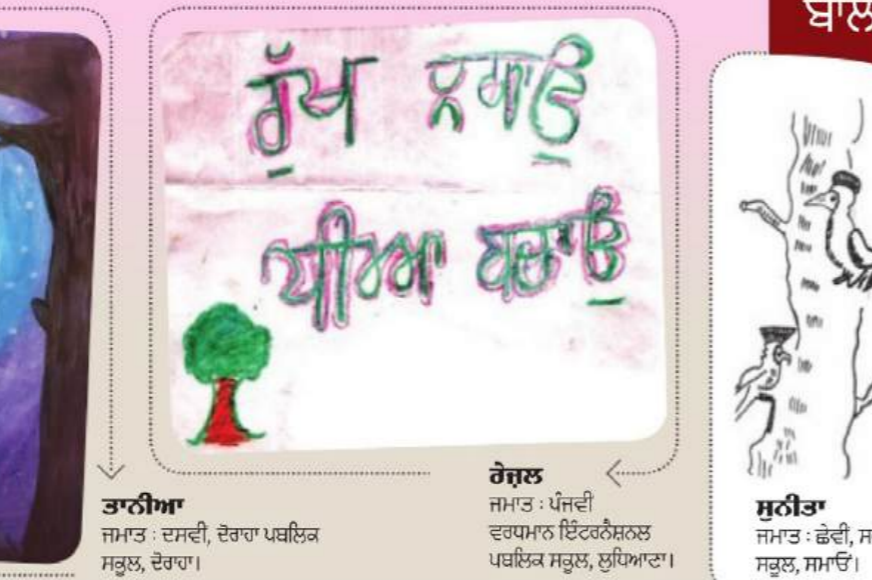 ਬਾਲ
ਰੁੱਖ ਲਗਾਉ
ਧੀਆ ਬਚਾਉ
ਤਾਨੀਆ
ਜਮਾਤ : ਦਸਵੀ, ਦੋਰਾਹਾ ਪਬਲਿਕ
ਸਕੂਲ, ਦੋਰਾਹਾ।
ਰੇਜ਼ਲ
ਜਮਾਤ : ਪੰਜਵੀ
ਵਰਧਮਾਨ ਇੰਟਰਨੈਸ਼ਨਲ
ਪਬਲਿਕ ਸਕੂਲ, ਲੁਧਿਆਣਾ।
ਸੁਨੀਤਾ
ਜਮਾਤ : ਛੇਵੀ, ਸ
ਸਕੂਲ, ਸਮਾਓਂ।